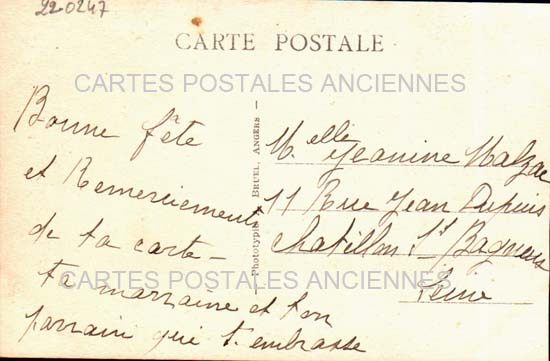 22-0247
CARTE POSTALE
CARTES POSTALES ANCIENNES
Bonne fête
et Remerciements
de ta carte -
ta marraine et ton
parrain qui t'embrasse
Phototypie BRUEL, ANGERS
Melle Jeanine Malzac
11 Rue Jean Dupuis
Chatillon St Bagneux
Seine
CARTES POSTALES ANCIENNES